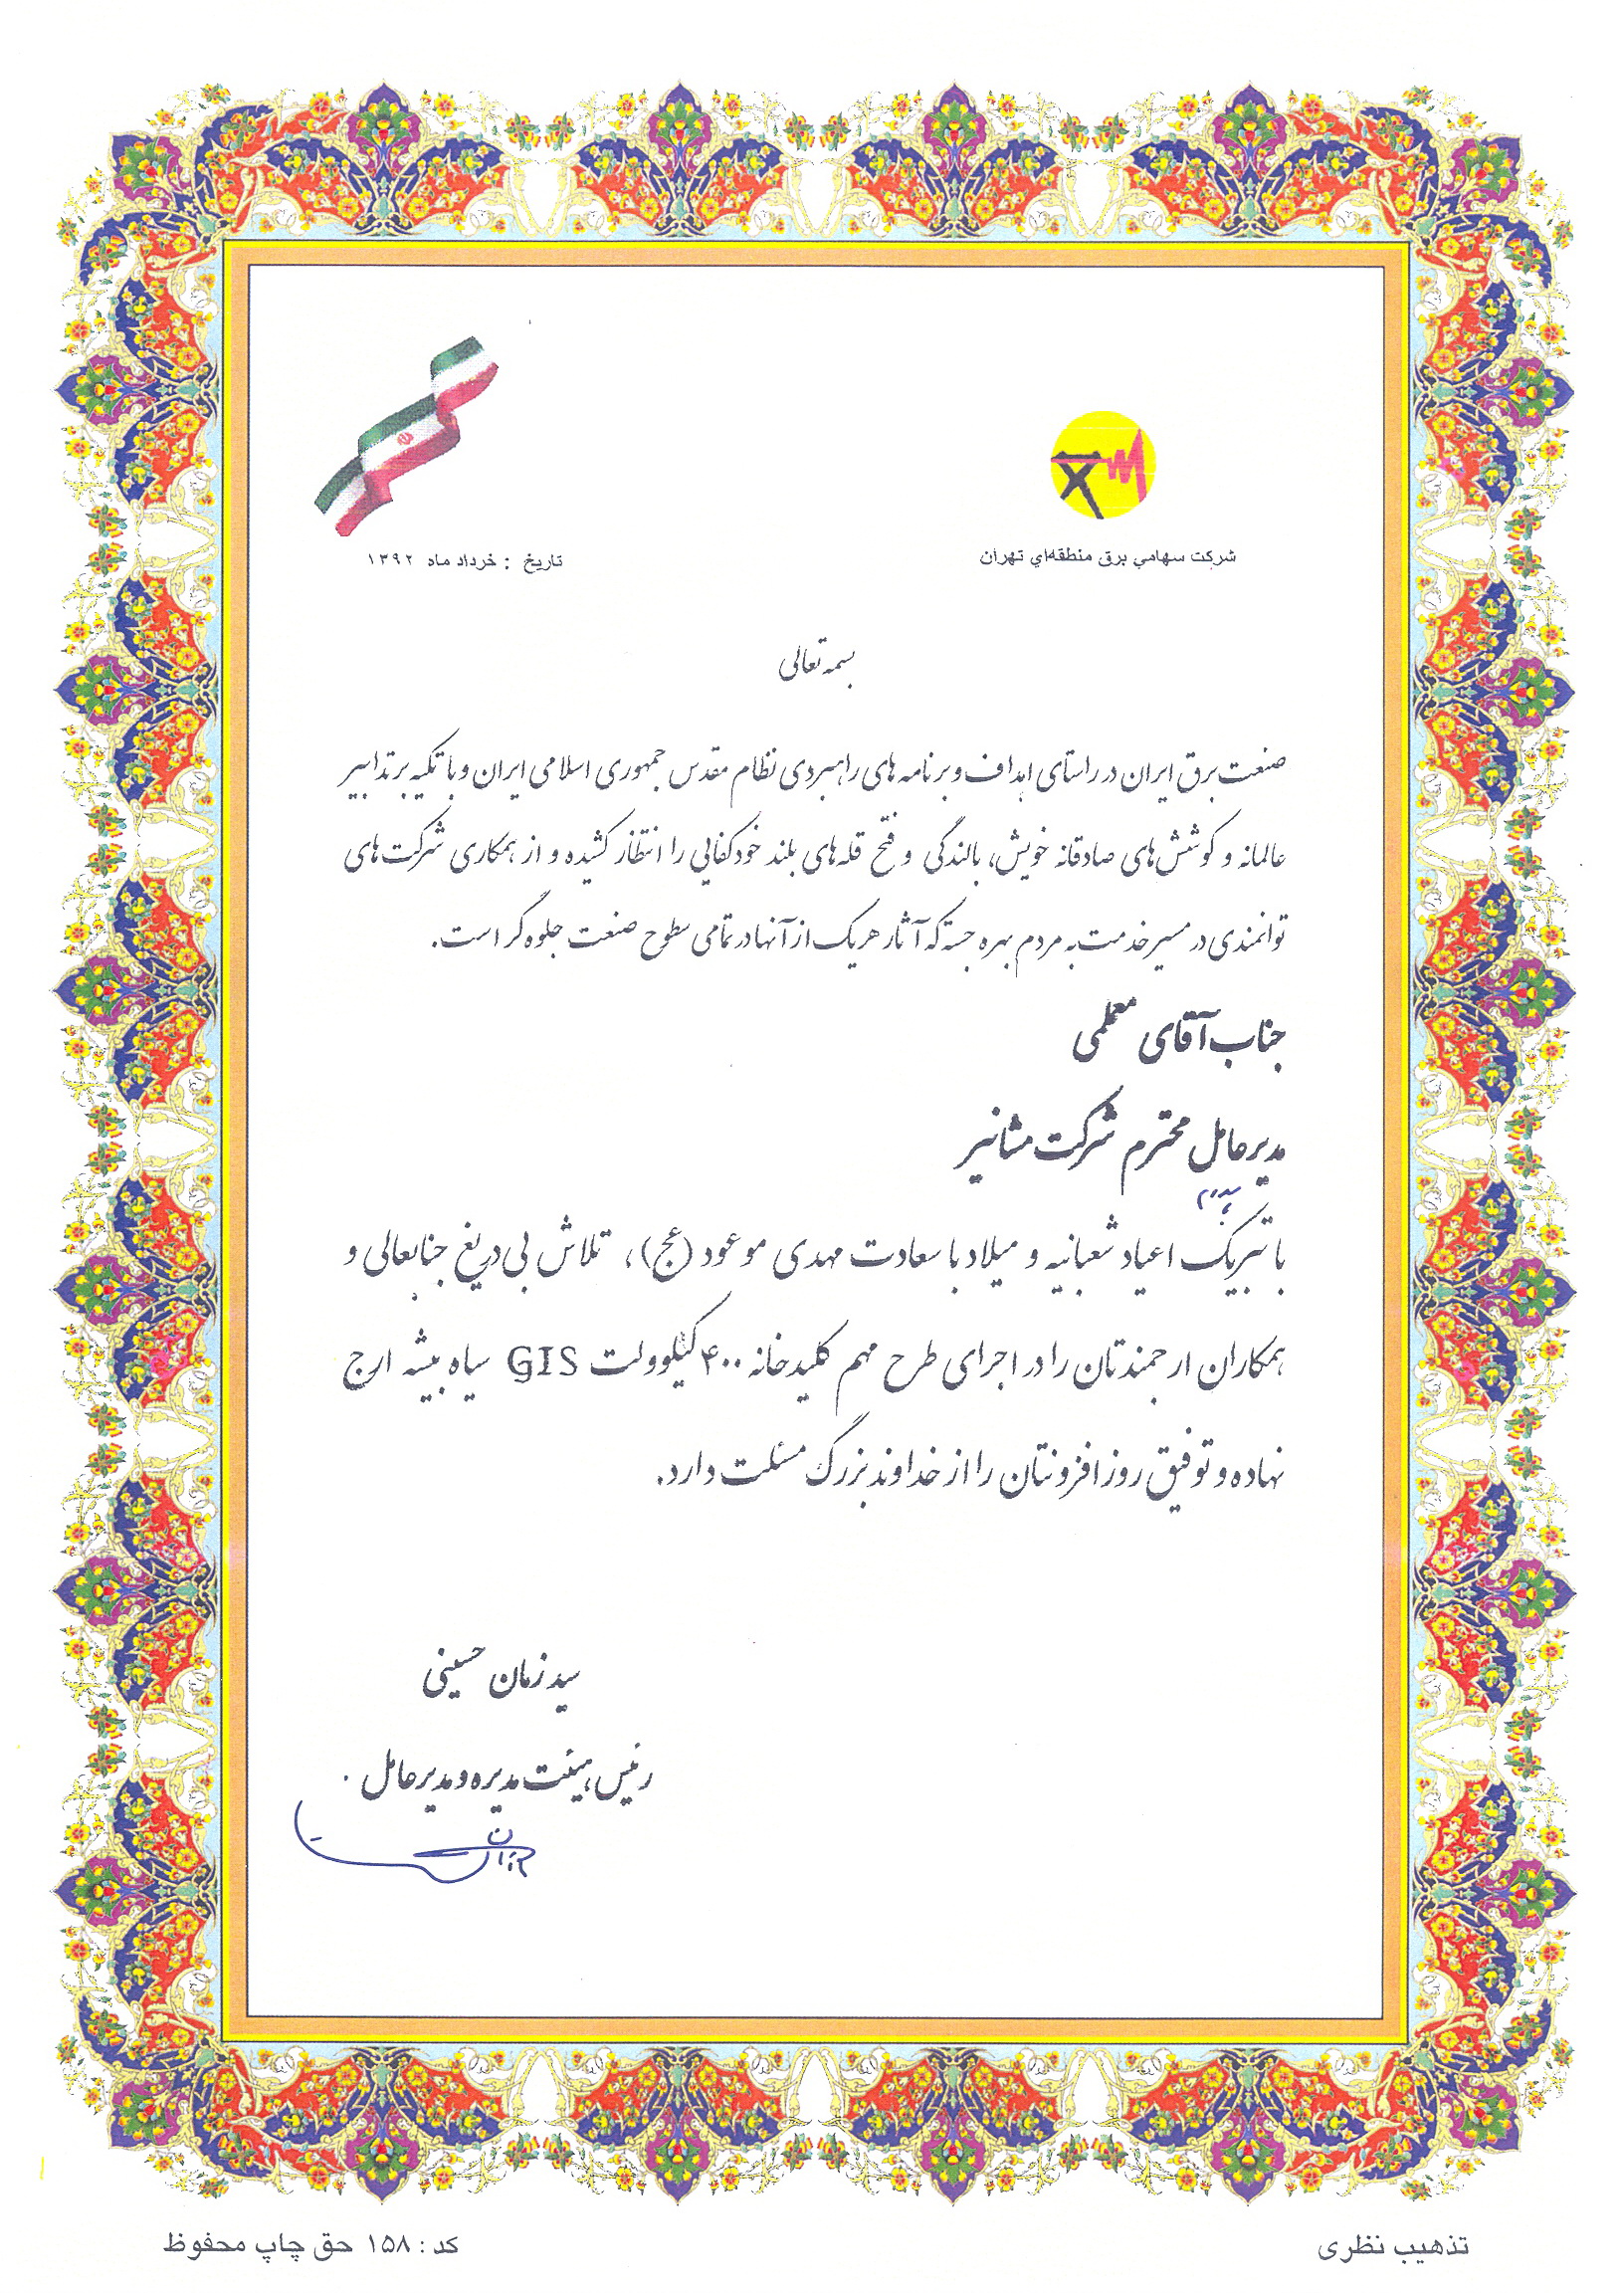 شرکت سهامي برق منطقه‌اي تهران
تاریخ : خرداد ماه ۱۳۹۲
بسمه تعالی
صنعت برق ایران در راستای اهداف و برنامه های راهبردی نظام مقدس جمهوری اسلامی ایران و با تکیه بر تدابیر
عالمانه و کوشش‌های صادقانه خویش، بالندگی و فتح قله‌های بلند خودکفایی را انتظار کشیده و از همکاری شرکت‌های
توانمندی در مسیر خدمت به مردم بهره جسته که آثار هریک از آنها در تمامی سطوح صنعت جلوه گر است.
جناب آقای معلمی
مدیرعامل محترم شرکت مشانیر
با تبریک اعیاد شعبانیه و میلاد با سعادت مهدی موعود (عج)، تلاش بی دریغ جنابعالی و
همکاران ارجمندتان را در اجرای طرح مهم کلیدخانه ۴۰۰ کیلوولت GIS سیاه بیشه ارج
نهاده و توفیق روزافزونتان را از خداوند بزرگ مسئلت دارد.
سید زمان حسینی
رئیس هیئت مدیره و مدیرعامل
تذهیب نظری
کد : ۱۵۸ حق چاپ محفوظ